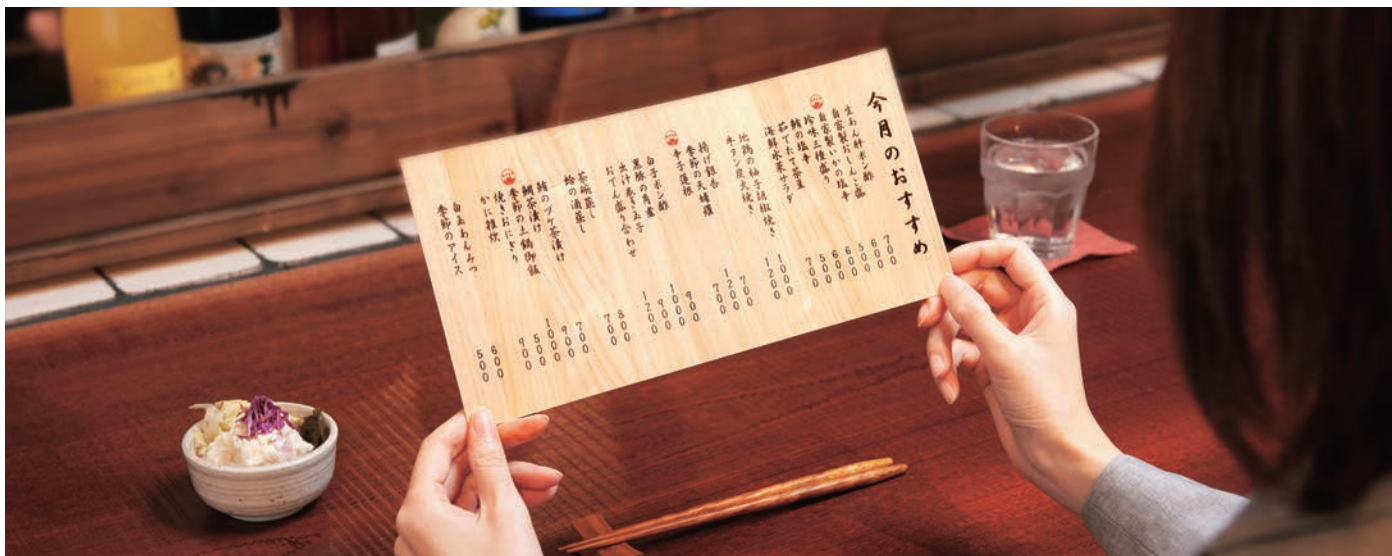 今月のおすすめ
生あん肝ポン酢 700
自家製おしんこ盛 600
自家製いかの塩辛 500
珍味三種盛り 600
鮪の塩辛 600
茹でたて茶豆 500
海鮮水菜サラダ 700
地鶏の柚子胡椒焼き 1000
牛タン炭火焼き 1200
揚げ銀杏 700
季節の天婦羅 1200
辛子蓮根 700
白子ポン酢 900
黒豚の角煮 1000
出汁巻き玉子 900
おでん盛り合わせ 1200
茶碗蒸し 800
蛤の酒蒸し 700
鮪のヅケ茶漬け 700
鯛茶漬け 900
季節の土鍋御飯 1000
焼きおにぎり 500
かに雑炊 900
白玉あんみつ 600
季節のアイス 500